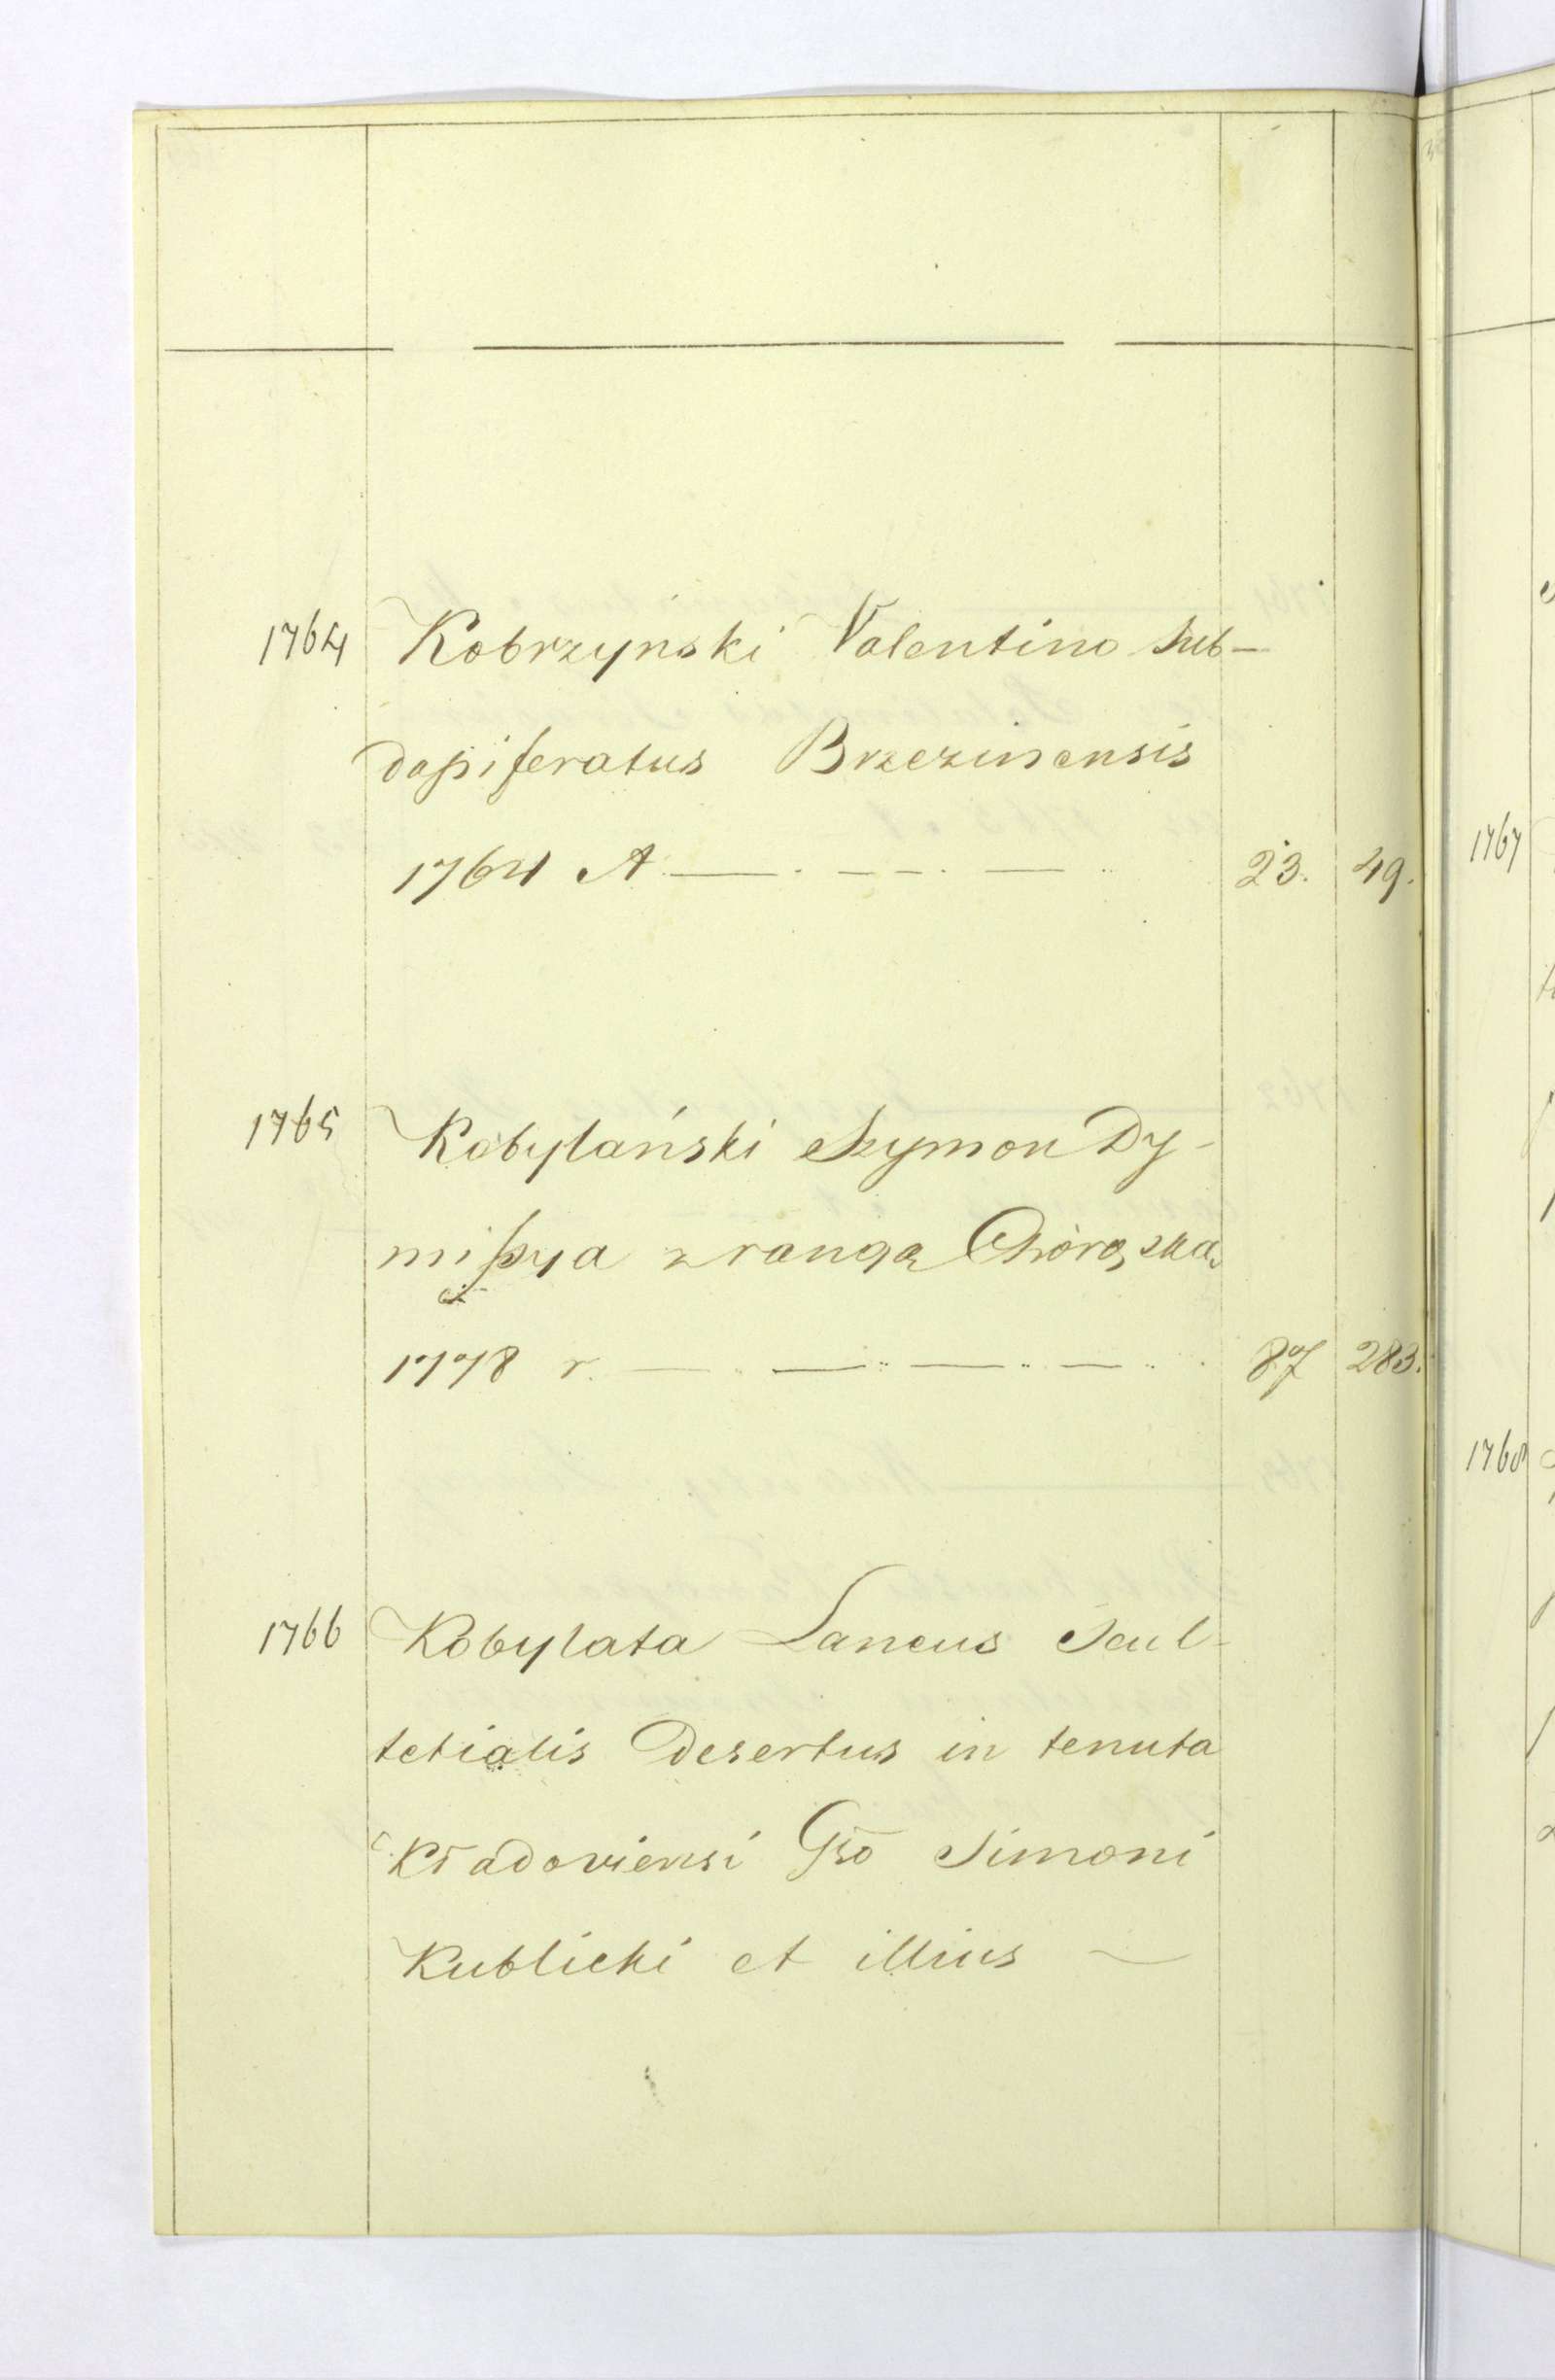 1764 Kobrzyński Valentino Sub-
dapiferatus Brzezinensis
1764 A 23. 49.
1765 Kobylański Szymon Dy-
mißya z rangą Chorążka
1778 r. 87 283.
1766 Kobylata Laneus Scul-
tetialis Desertus in tenuta
Kłodoviensi Gso Simoni
Kublicki et illius
1767
1768